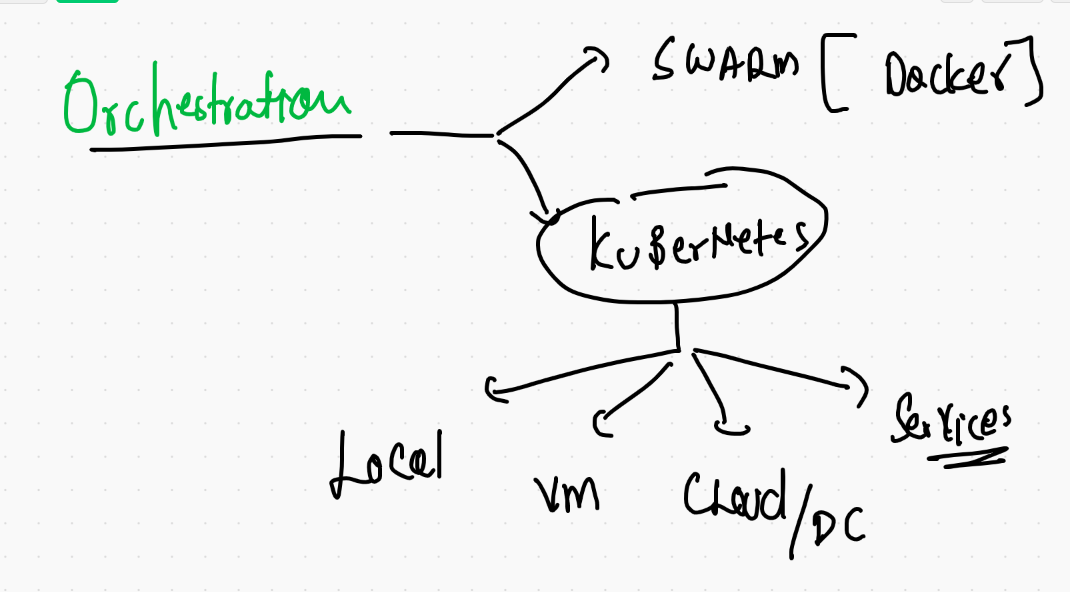 Orchestration
SWARM [Docker]
KuBerNetes
Local
VM
Cloud/DC
Services